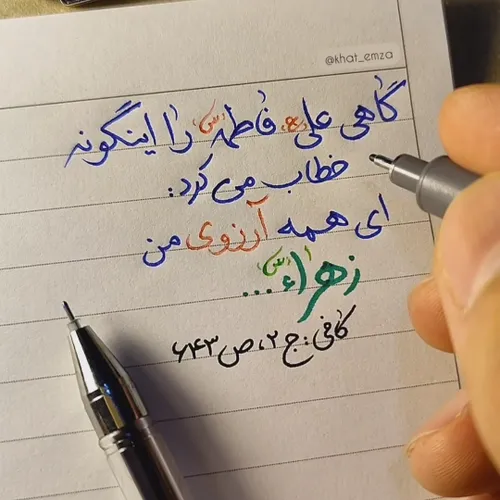 @khat_emza
گاهی علی (ع) فاطمه (س) را اینگونه
خطاب می کرد:
ای همه آرزوی من
زهراء (س)...
کافی: ج ۲، ص ۶۴۳